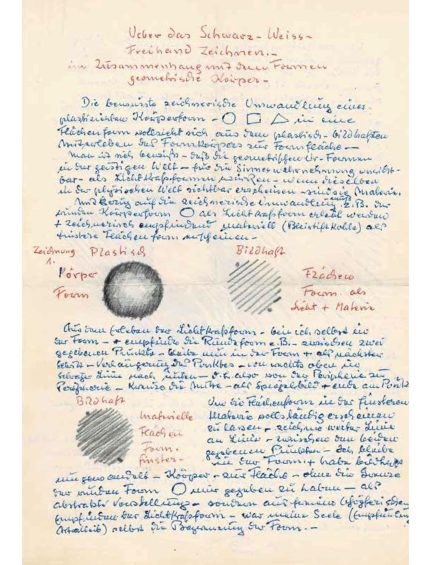 Ueber das Schwarz-Weiss-
Freihand Zeichnen.-
im Zusammenhang mit dem Formen
geometrische Körper-
Die bewusste zeichnerische Umwandlung einer
plastischen Körperform - in eine
Flächenform vollzieht sich aus dem plastisch-bildhaften
Miterleben der Form Körper zur Formfläche-
man ist sich bewußt - daß die geometrischen Ur-Formen
in der geistigen Welt - für die Sinneswahrnehmung unsicht-
bar - als Lichtkraftformen wirken - wenn dieselben
in der physischen Welt sichtbar erscheinen - sind sie Materie.
die zeichnerische Umwandlung z.B. der
runden Körperform als Lichtkraftform erlebt werden
+ zeichnerisch empfindend materiell (Bleistift Kohle) als
finstere Flächenform
Zeichnung Plastisch Bildhaft
1.
Körper
Form
Flächen
Form als
Licht + Materie
Aus dem Erleben der Lichtkraftform - bin ich selbst in
der Form - + empfinde die Rundform z.B. - zwischen zwei
gegebenen Punkte - bleibe nun in der Form + als nächster
der Punkte - von rechts oben in
nach unten - d.h. also von der Peripherie zur
Peripherie - die Mitte - als Spiegelbild + ende am Punkt
Bildhaft
materielle
Flächen
Form
finster-
Um die Flächenform in der finsteren
Materie vollständig erscheinen
zu lassen - zeichne weiter Linie
an Linie - zwischen den beiden
gegebenen Punkten - Ich bleibe
in der Form + habe
umgewandelt - Körper - zur Fläche - ohne die Grenze
der runden Form mir gegeben zu haben - als
abstrakte Vorstellung - sondern aus
empfinden der Lichtkraftform - war meine Seele
selbst die Begrenzung der Form.-